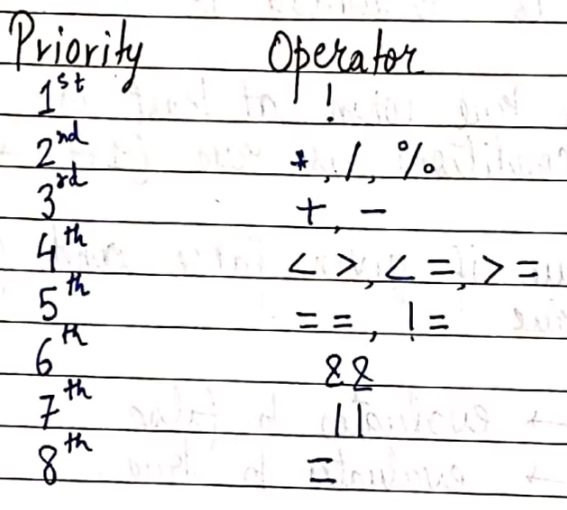 Priority Operator
1st !
2nd *, /, %
3rd +, -
4th < >, < =, > =
5th = =, ! =
6th &&
7th ||
8th =